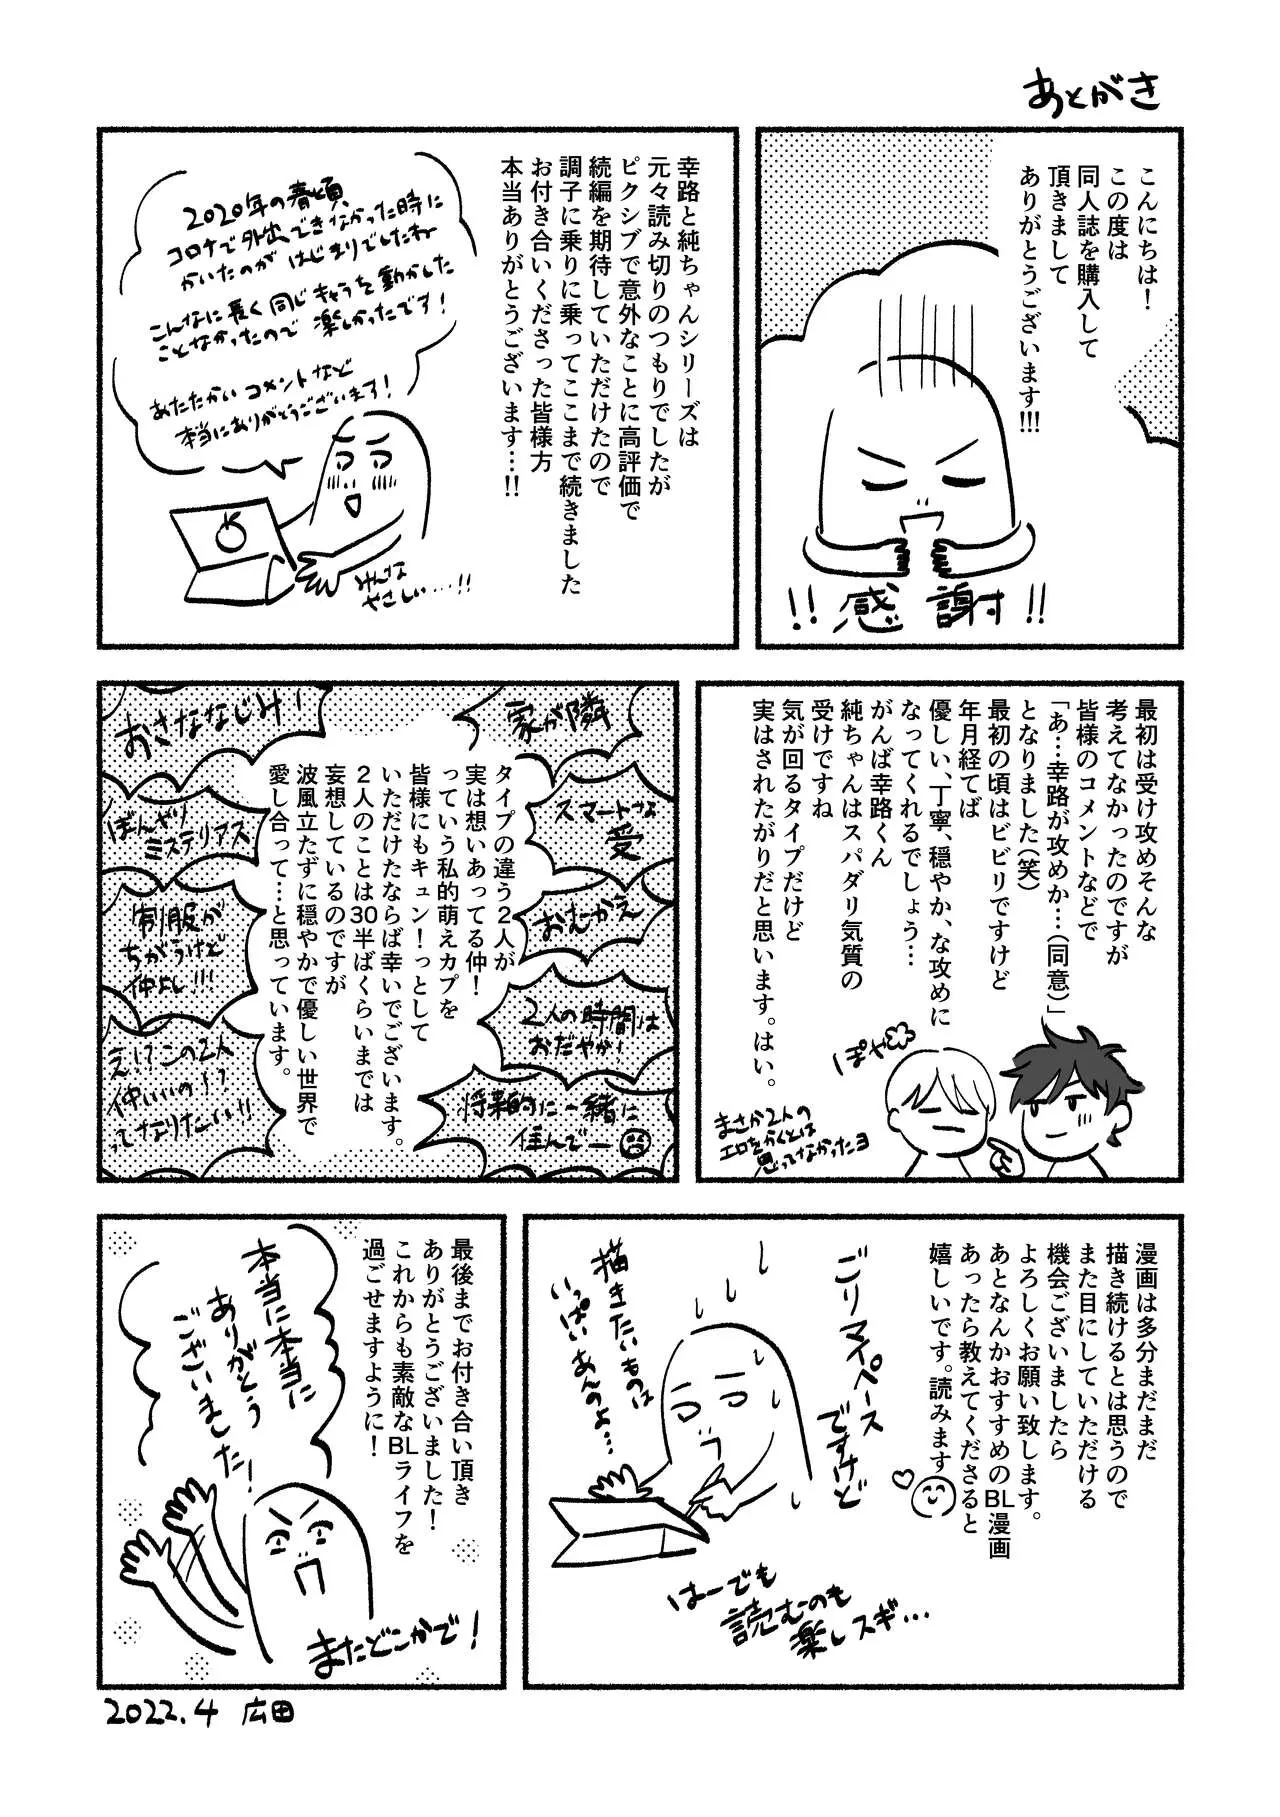 あとがき
こんにちは！
この度は
同人誌を購入して
頂きまして
ありがとうございます!!!
!!感謝!!
幸路と純ちゃんシリーズは
元々読み切りのつもりでしたが
ピクシブで意外なことに高評価で
続編を期待していただけたので
調子に乗りに乗ってここまで続きました
お付き合いくださった皆様方
本当ありがとうございます…!!
2020年の春頃
コロナで外出できなかった時に
かいたのがはじまりでしたねー
こんなに長く同じキャラを動かした
ことなかったので楽しかったです！
あたたかいコメントなど
本当にありがとうございます！
みんな
やさしい…!!
最初は受け攻めそんな
考えてなかったのですが
皆様のコメントなどで
「あ…幸路が攻めか…（同意）」
となりました（笑）
最初の頃はビビリですけど
年月経てば
優しい、丁寧、穏やか、な攻めに
なってくれるでしょう…
がんば幸路くん
純ちゃんはスパダリ気質の
受けですね
気が回るタイプだけど
実はされたがりだと思います。はい。
ぽやぁ
まさか2人の
エロをかくとは
思ってなかったヨ
家が隣
スマートな
受
おむかえ
2人の時間は
おだやか！
将来的に一緒に
住んでー
タイプの違う2人が
実は想いあってる仲！
っていう私的萌えカプを
皆様にもキュン！っとして
いただけたならば幸いでございます。
2人のことは30半ばくらいまでは
妄想しているのですが
波風立たずに穏やかで優しい世界で
愛し合って…と思っています。
おさななじみ！
ぼんやり
ミステリアス
制服が
ちがうけど
仲よし!!!
え!?この2人
仲いいの!?
ってなりたいい!!
漫画は多分まだまだ
描き続けるとは思うので
また目にしていただける
機会ございましたら
よろしくお願い致します。
あとなんかおすすめのBL漫画
あったら教えてくださると
嬉しいです。読みます
ごりマイペース
ですけど
描きたいものは
いっぱいあんのよ…
はーでも
読むのも
楽しスギ…
最後までお付き合い頂き
ありがとうございました！
これからも素敵なBLライフを
過ごせますように！
本当に本当に
ありがとう
ございました！
またどこかで！
2022.4 広田